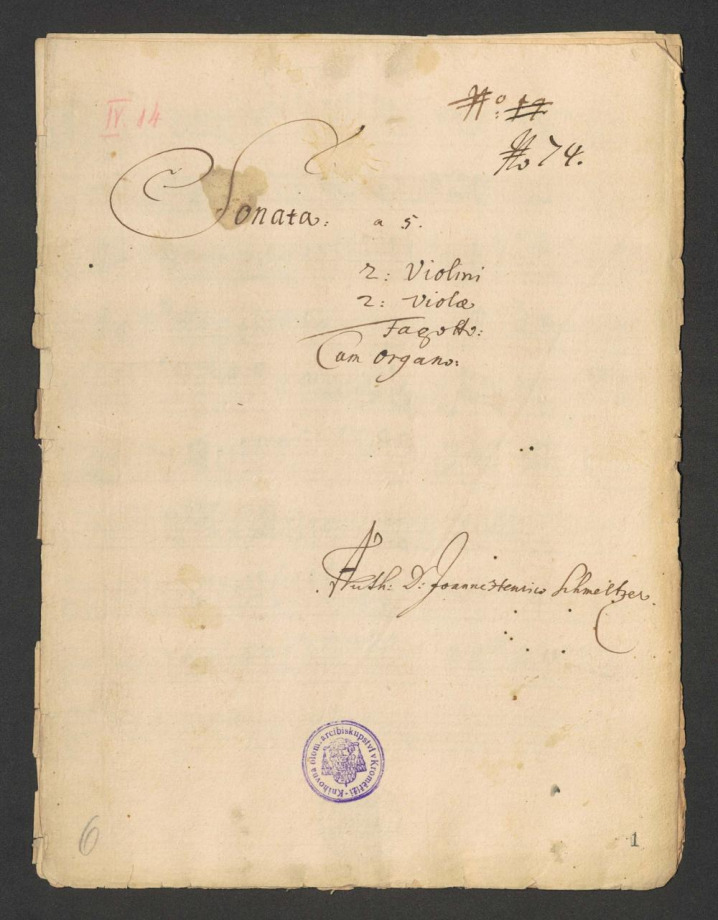 IV 14
No: 11
No 74.
Sonata: a 5.
2: Violini
2: Violæ
Fagotto:
Cum Organo:
Auth: D: Joanne Henrico Schmeltzer.
Knihovna olom. arcibiskupství v Kroměříži
6
1